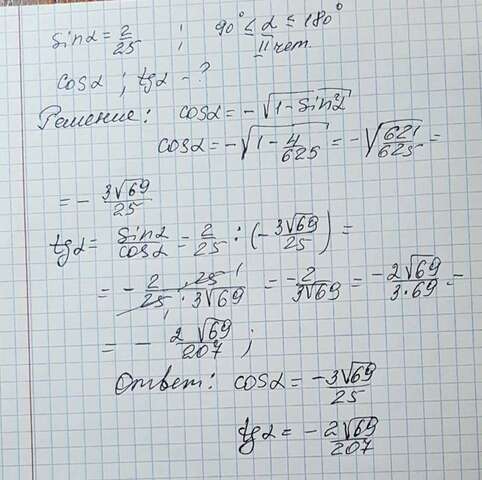 sinα = 2/25 ; 90° ≤ α ≤ 180°
II чет.
cosα ; tgα - ?
Решение: cosα = -√(1-sin²α)
cosα = -√(1 - 4/625) = -√(621/625) =
= - 3√69/25
tgα = sinα/cosα = 2/25 : (- 3√69/25) =
= - 2·25/(25·3√69) = -2/(3√69) = -2√69/(3·69) =
= - 2√69/207 ;
Ответ: cosα = -3√69/25
tgα = - 2√69/207